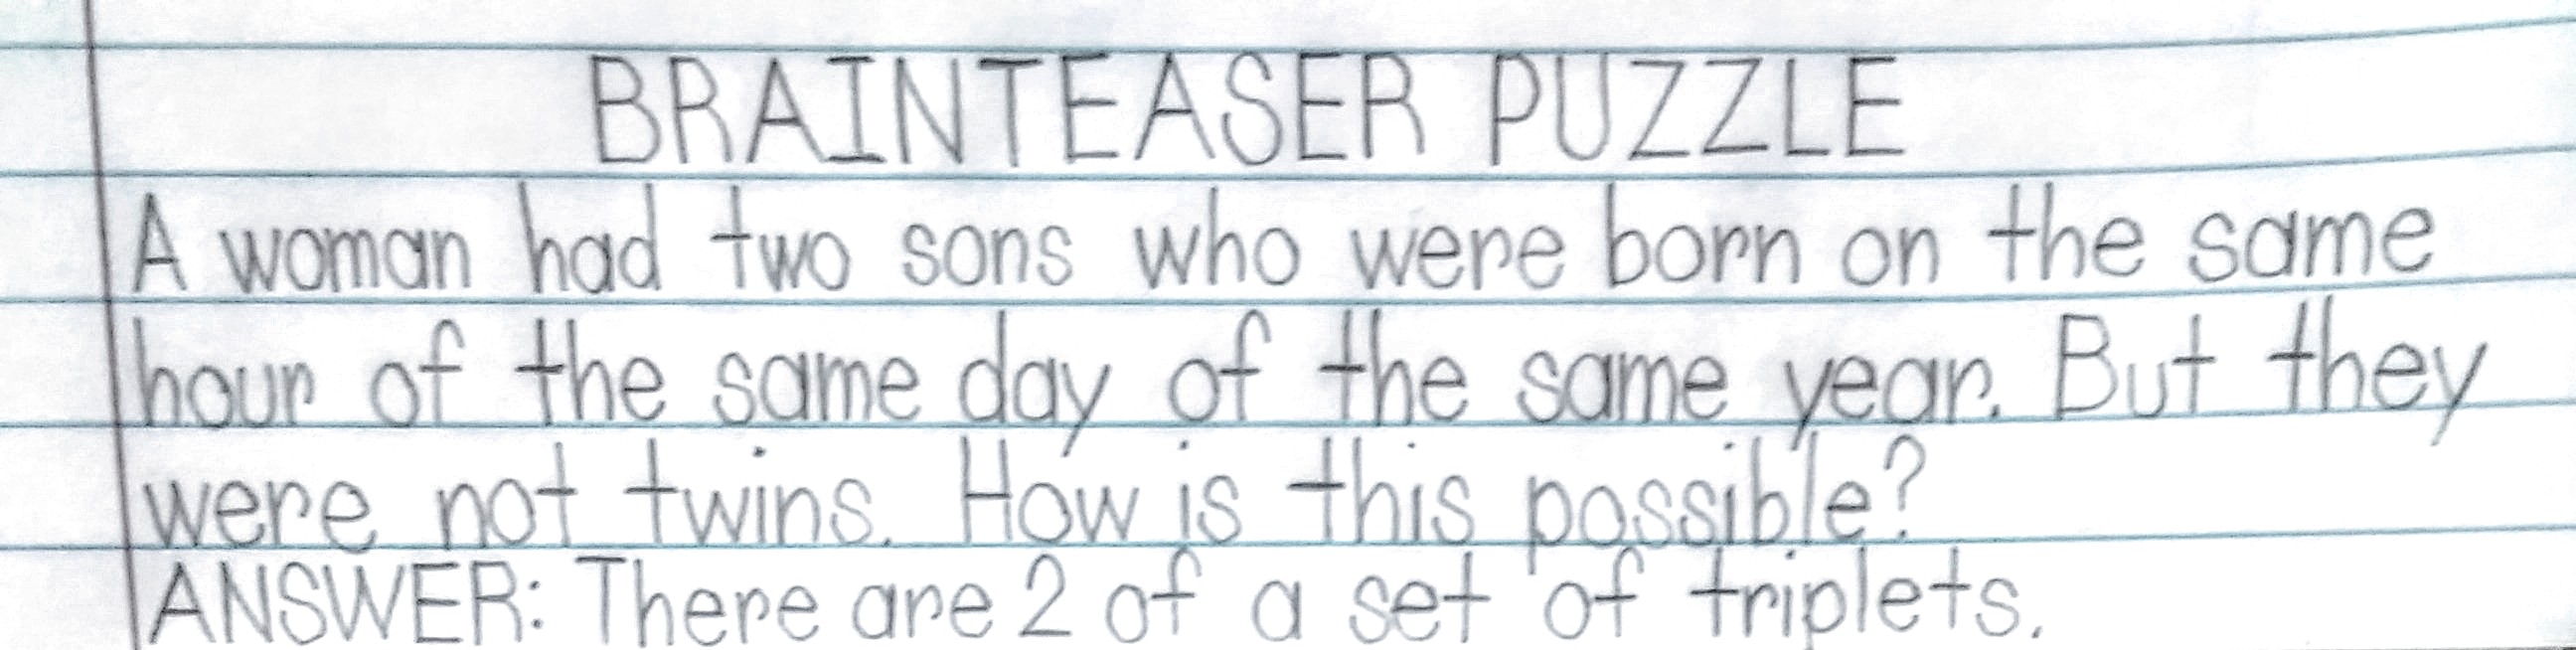 BRAINTEASER PUZZLE
A woman had two sons who were born on the same
hour of the same day of the same year. But they
were not twins. How is this possible?
ANSWER: There are 2 of a set of triplets.